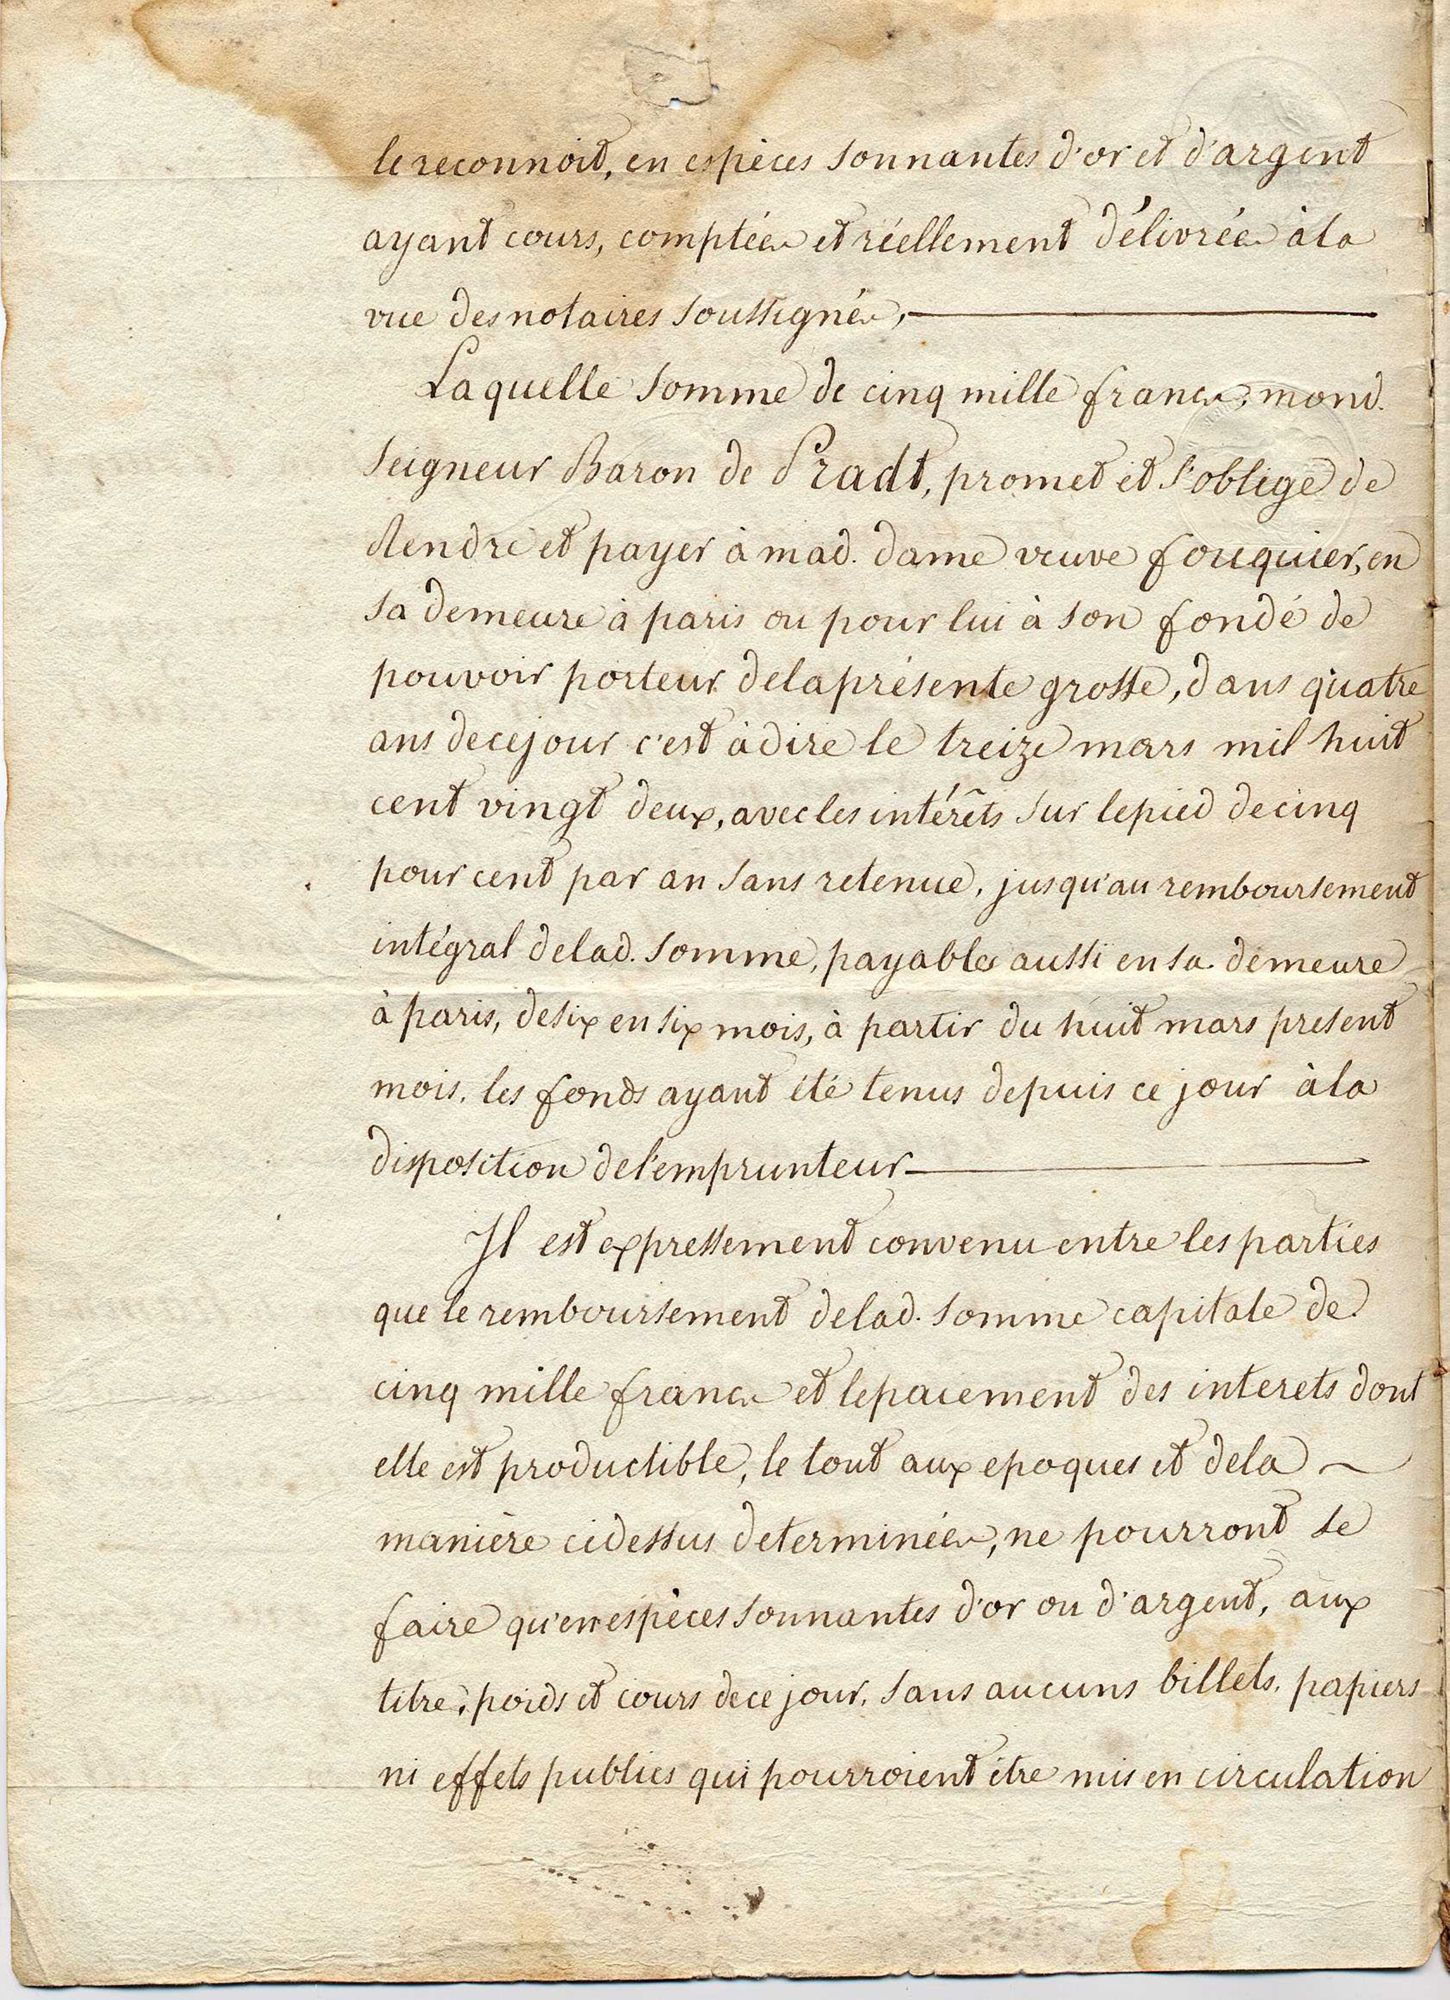 le reconnoit, en espèces sonnantes d'or et d'argent
ayant cours, comptées et réellement délivrées à la
vue des notaires soussignés,
Laquelle somme de cinq mille francs, mond.
Seigneur Baron de Pradt, promet et s'oblige de
Rendre et payer à mad. dame veuve fouquier, en
sa demeure à paris ou pour lui à son fondé de
pouvoir porteur de la présente grosse, dans quatre
ans de ce jour c'est à dire le treize mars mil huit
cent vingt deux, avec les intérêts sur le pied de cinq
pour cent par an sans retenue, jusqu'au remboursement
intégral de lad. somme, payables aussi en sa demeure
à paris, de six en six mois, à partir du huit mars present
mois, les fonds ayant été tenus depuis ce jour à la
disposition de l'emprunteur
Il est expressement convenu entre les parties
que le remboursement de lad. somme capitale de
cinq mille francs et le paiement des interets dont
elle est productible, le tout aux epoques et de la
manière ci dessus determinées, ne pourront se
faire qu'en espèces sonnantes d'or ou d'argent, aux
titre, poids et cours de ce jour, sans aucuns billets, papiers
ni effets publics qui pourroient être mis en circulation